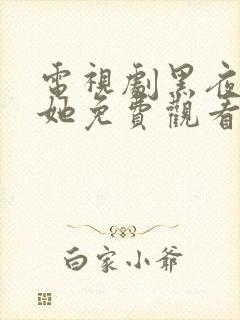 電視劇黑夜
她免費觀看
白家小爺